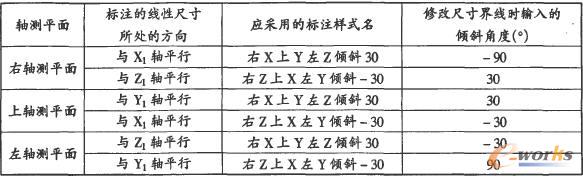 轴测平面 标注的线性尺寸所处的方向 应采用的标注样式名 修改尺寸界线时输入的倾斜角度(°)
右轴测平面 与 X₁ 轴平行 右 X 上 Y 左 Z 倾斜 30 -90
与 Z₁ 轴平行 右 Z 上 X 左 Y 倾斜-30 30
上轴测平面 与 Y₁ 轴平行 右 X 上 Y 左 Z 倾斜 30 30
与 X₁ 轴平行 右 Z 上 X 左 Y 倾斜-30 -30
左轴测平面 与 Z₁ 轴平行 右 X 上 Y 左 Z 倾斜 30 -30
与 Y₁ 轴平行 右 Z 上 X 左 Y 倾斜-30 90
e-works